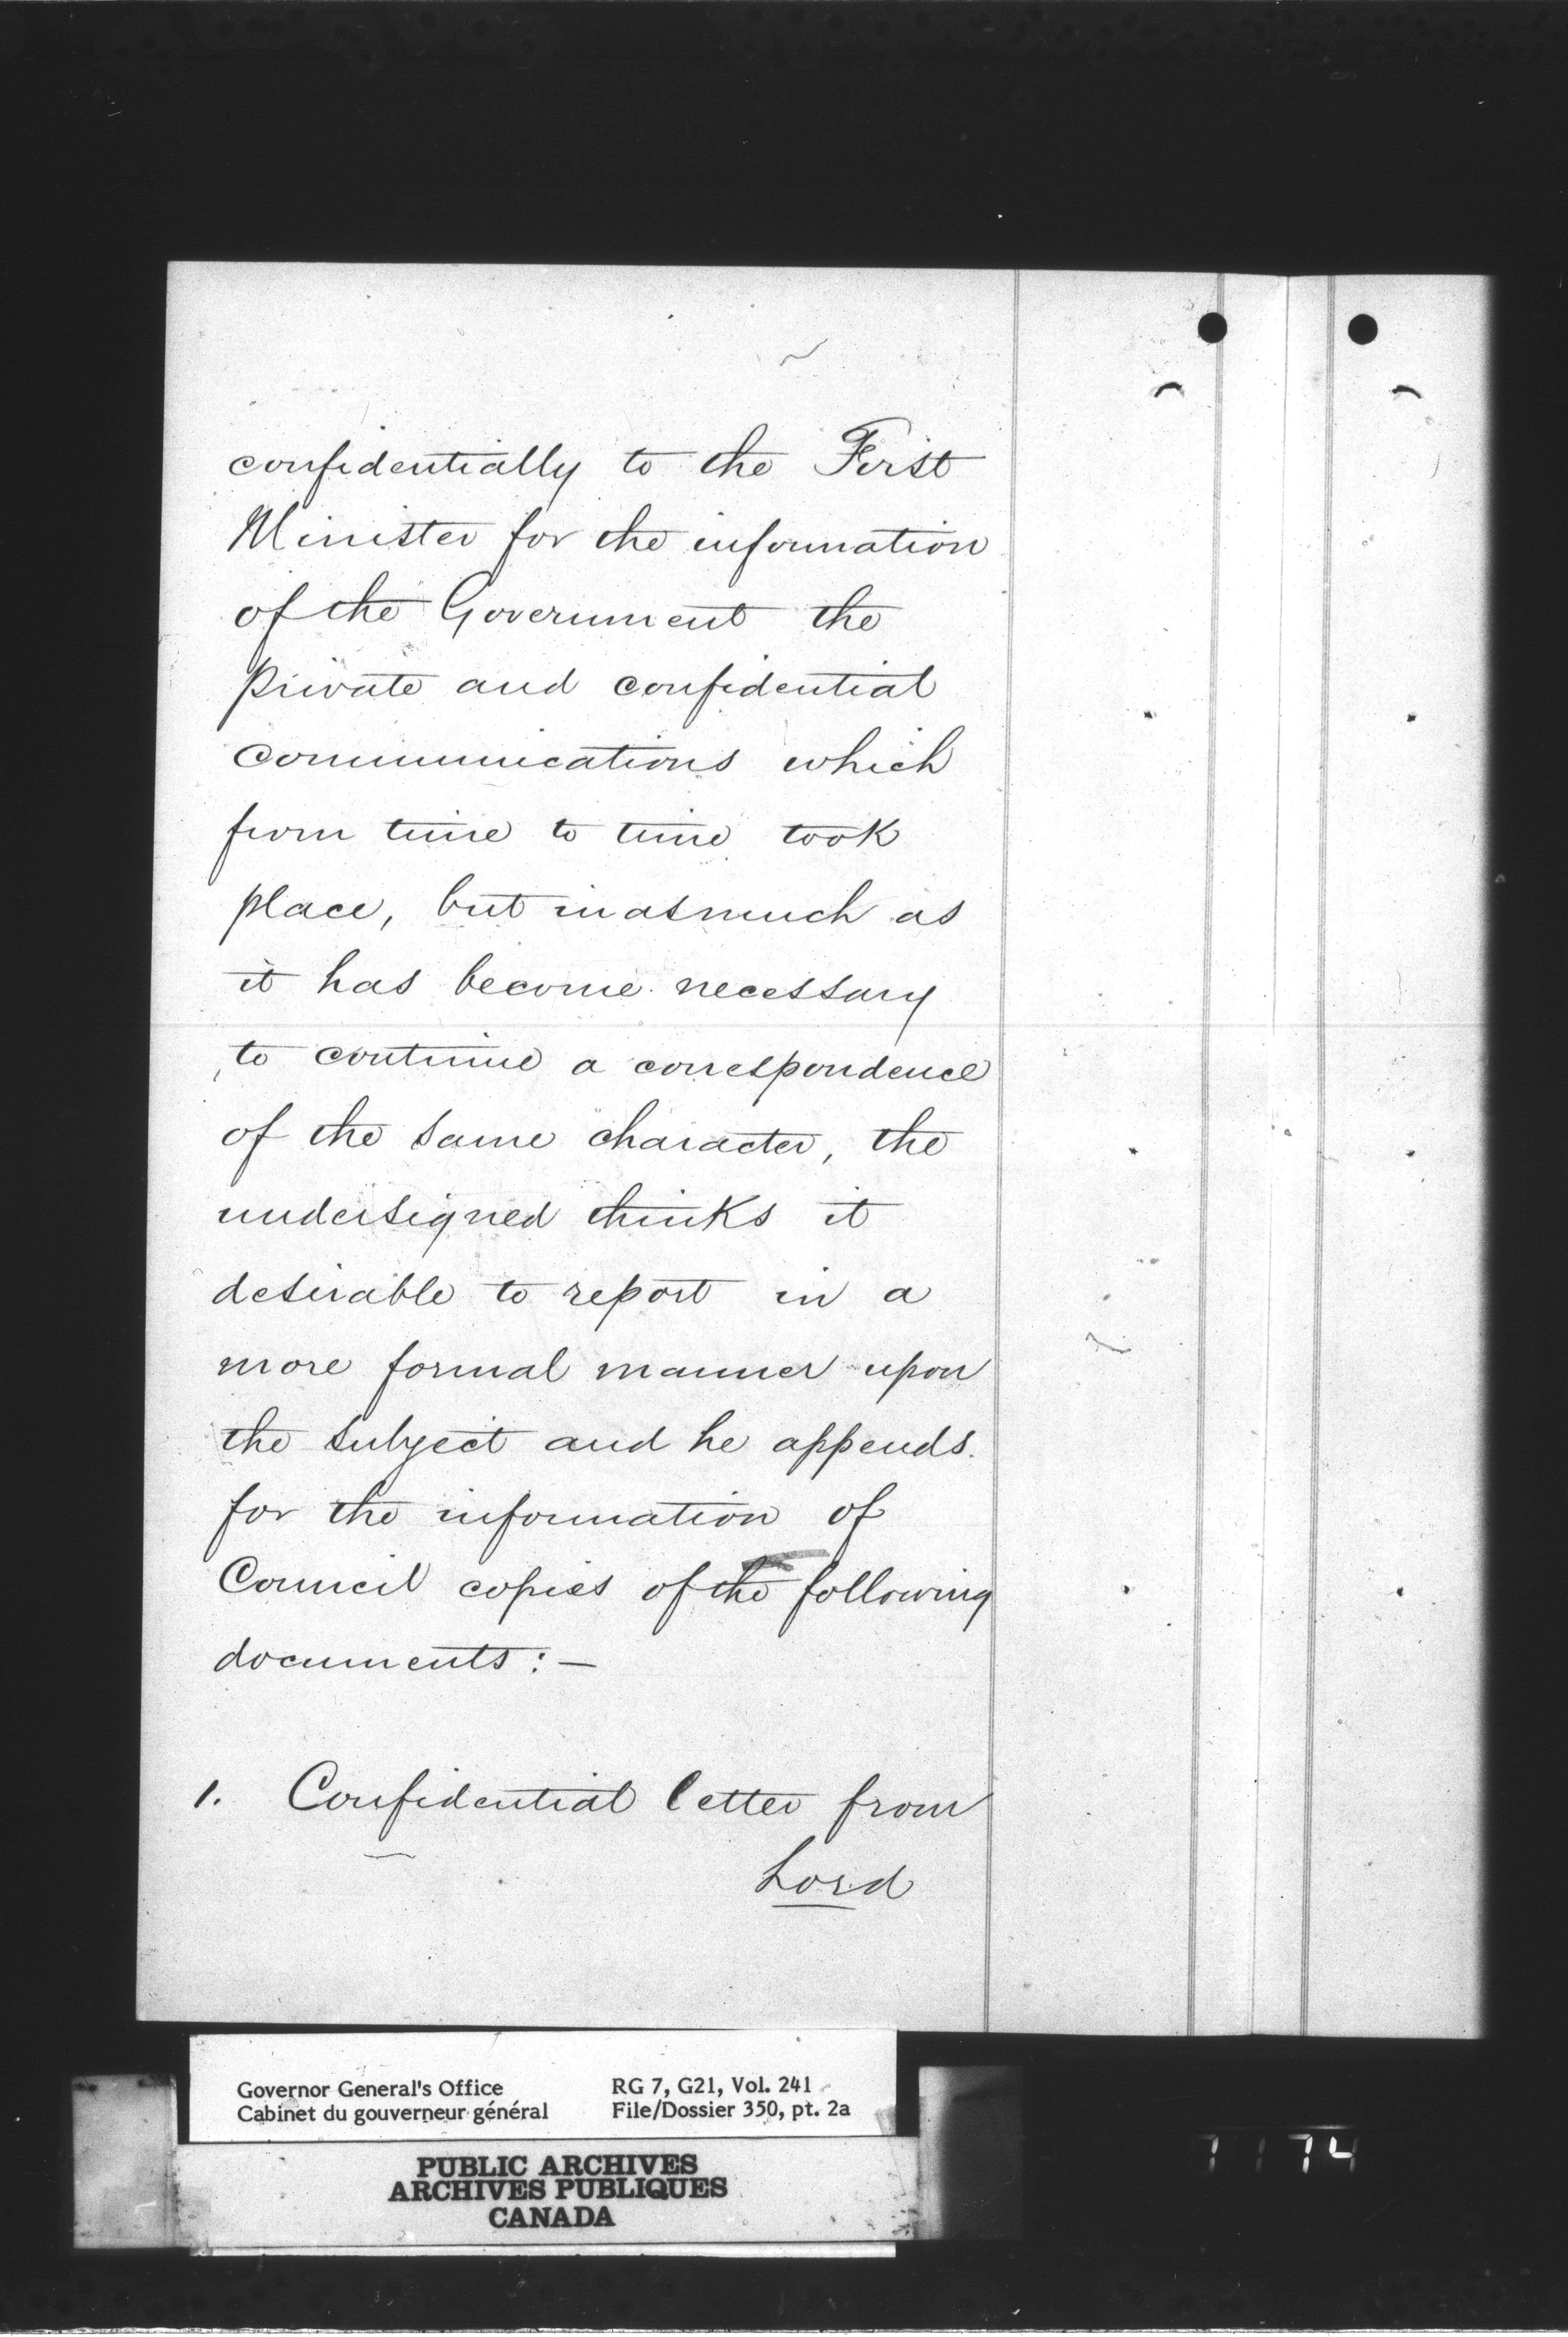 confidentially to the First
Minister for the information
of the Government the
private and confidential
communications which
from time to time took
place, but inasmuch as
it has become necessary
to continue a correspondence
of the same character, the
undersigned thinks it
desirable to report in a
more formal manner upon
the subject and he appends
for the information of
Council copies of the following
documents:—
1. Confidential letter from
Lord
Governor General's Office RG 7, G21, Vol. 241
Cabinet du gouverneur général File/Dossier 350, pt. 2a
PUBLIC ARCHIVES
ARCHIVES PUBLIQUES
CANADA
1174